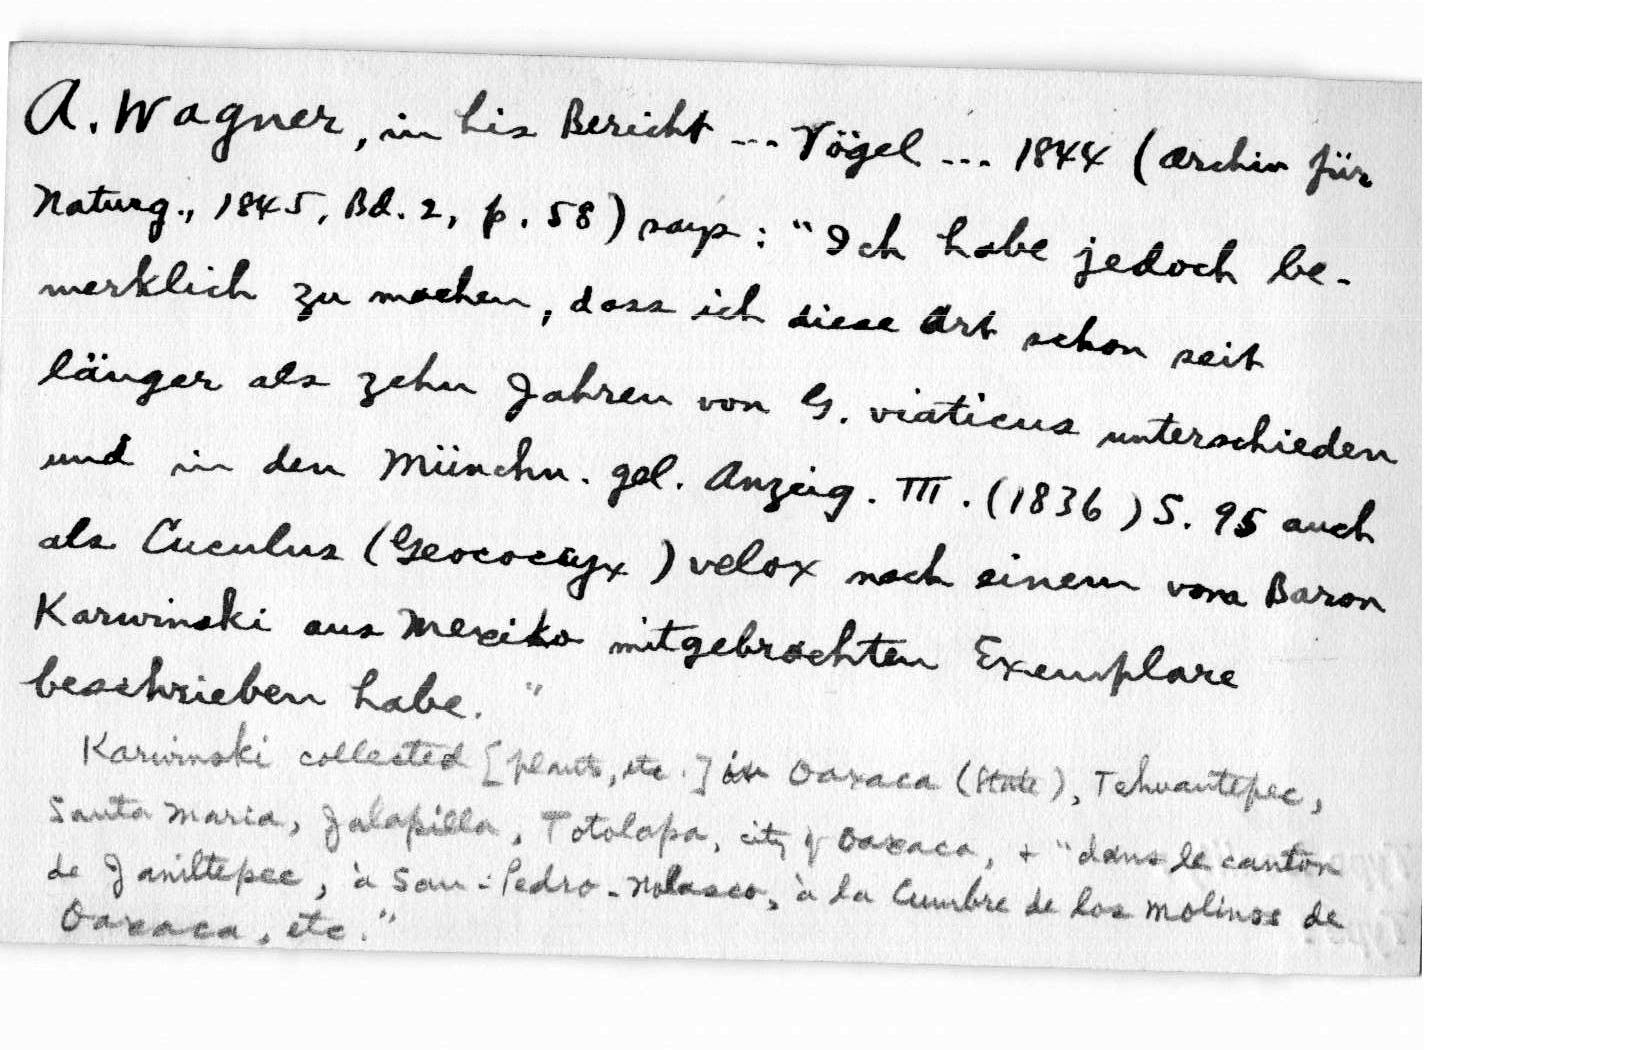 A. Wagner, in his Bericht --- Vögel --- 1844 (Archiv für
Naturg., 1845, Bd. 2, p. 58) says: "Ich habe jedoch be-
merklich zu machen, dass ich diese Art schon seit
länger als zehn Jahren von G. viaticus unterschieden
und in den Münchn. gel. Anzeig. III. (1836) S. 95 auch
als Cuculus (Geococcyx) velox nach einem vom Baron
Karwinski aus Mexiko mitgebrachten Exemplare
beschrieben habe."
Karwinski collected [plants, etc.] in Oaxaca (State), Tehuantepec,
Santa Maria, Jalapilla, Totolapa, city of Oaxaca, + "dans le canton
de Janiltepec, à San-Pedro-Nolasco, à la Cumbre de los Molinos de
Oaxaca, etc."